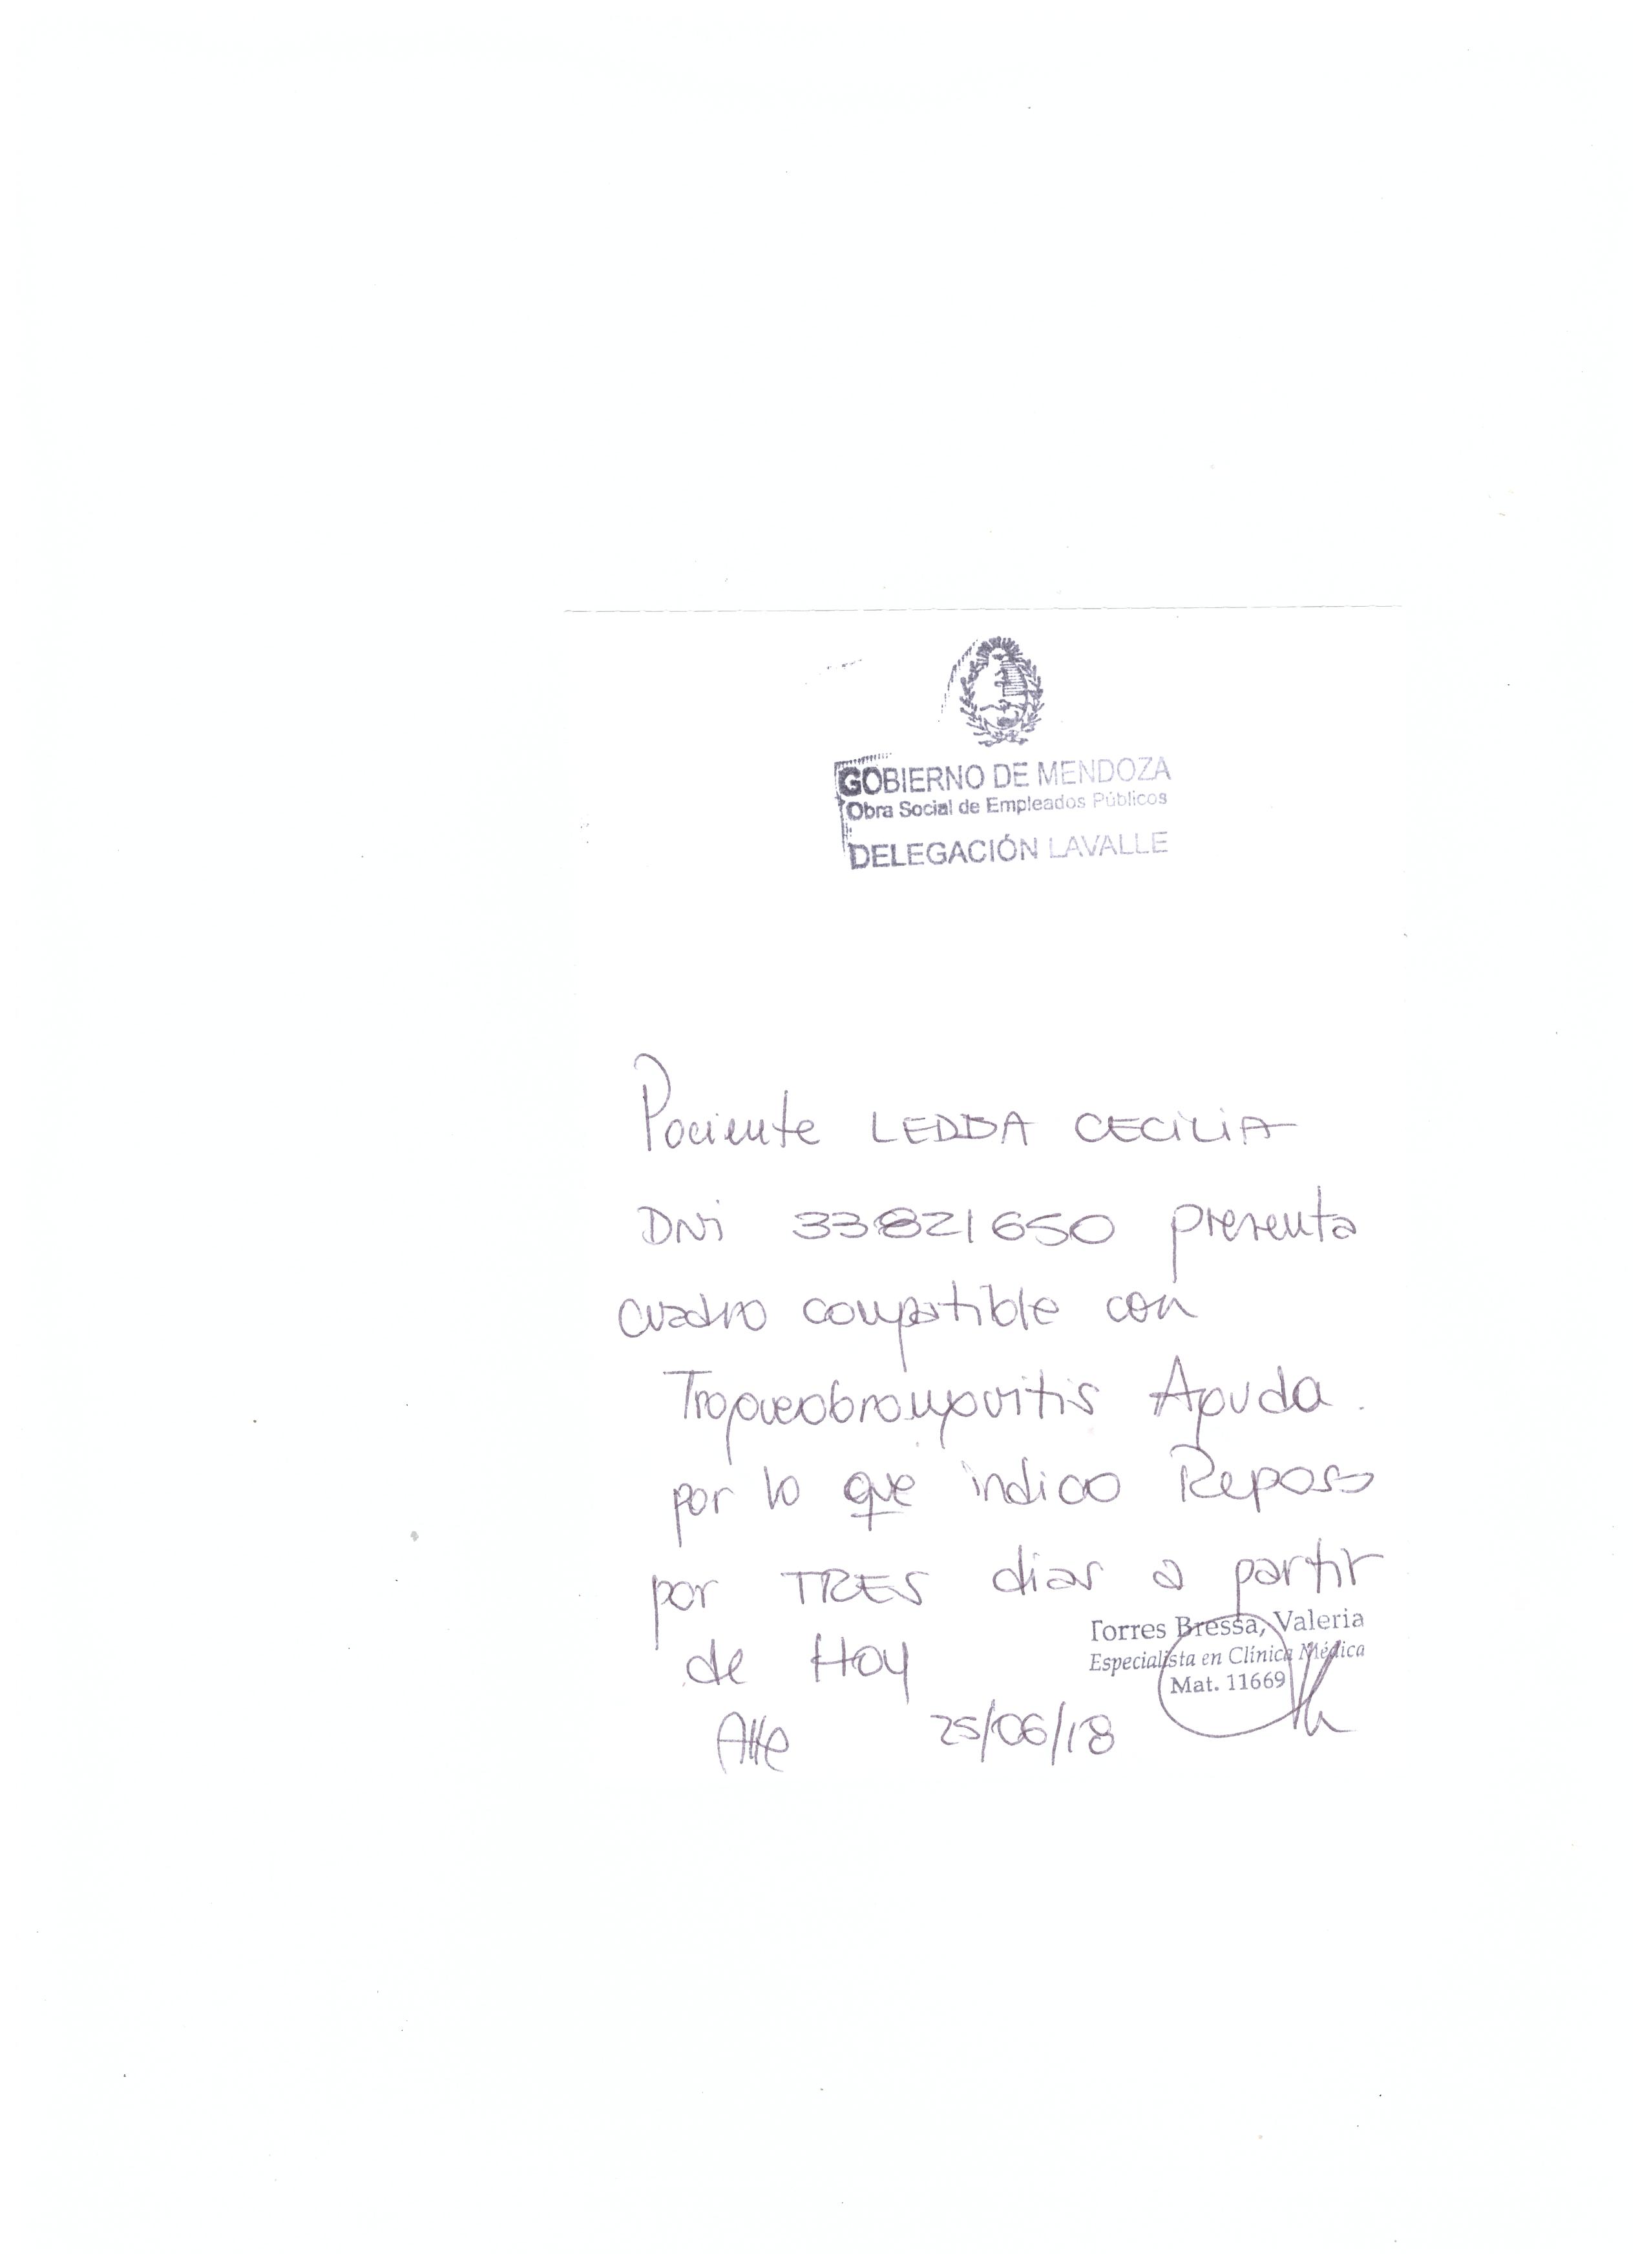 GOBIERNO DE MENDOZA
Obra Social de Empleados Públicos
DELEGACIÓN LAVALLE
Paciente LEDDA CECILIA
DNi 33821650 presenta
cuadro compatible con
Traqueobronquitis Aguda.
por lo que indico Reposo
por TRES dias a partir
de Hoy
Torres Bressa, Valeria
Especialista en Clínica Médica
Mat. 11669
Atte 25/06/18